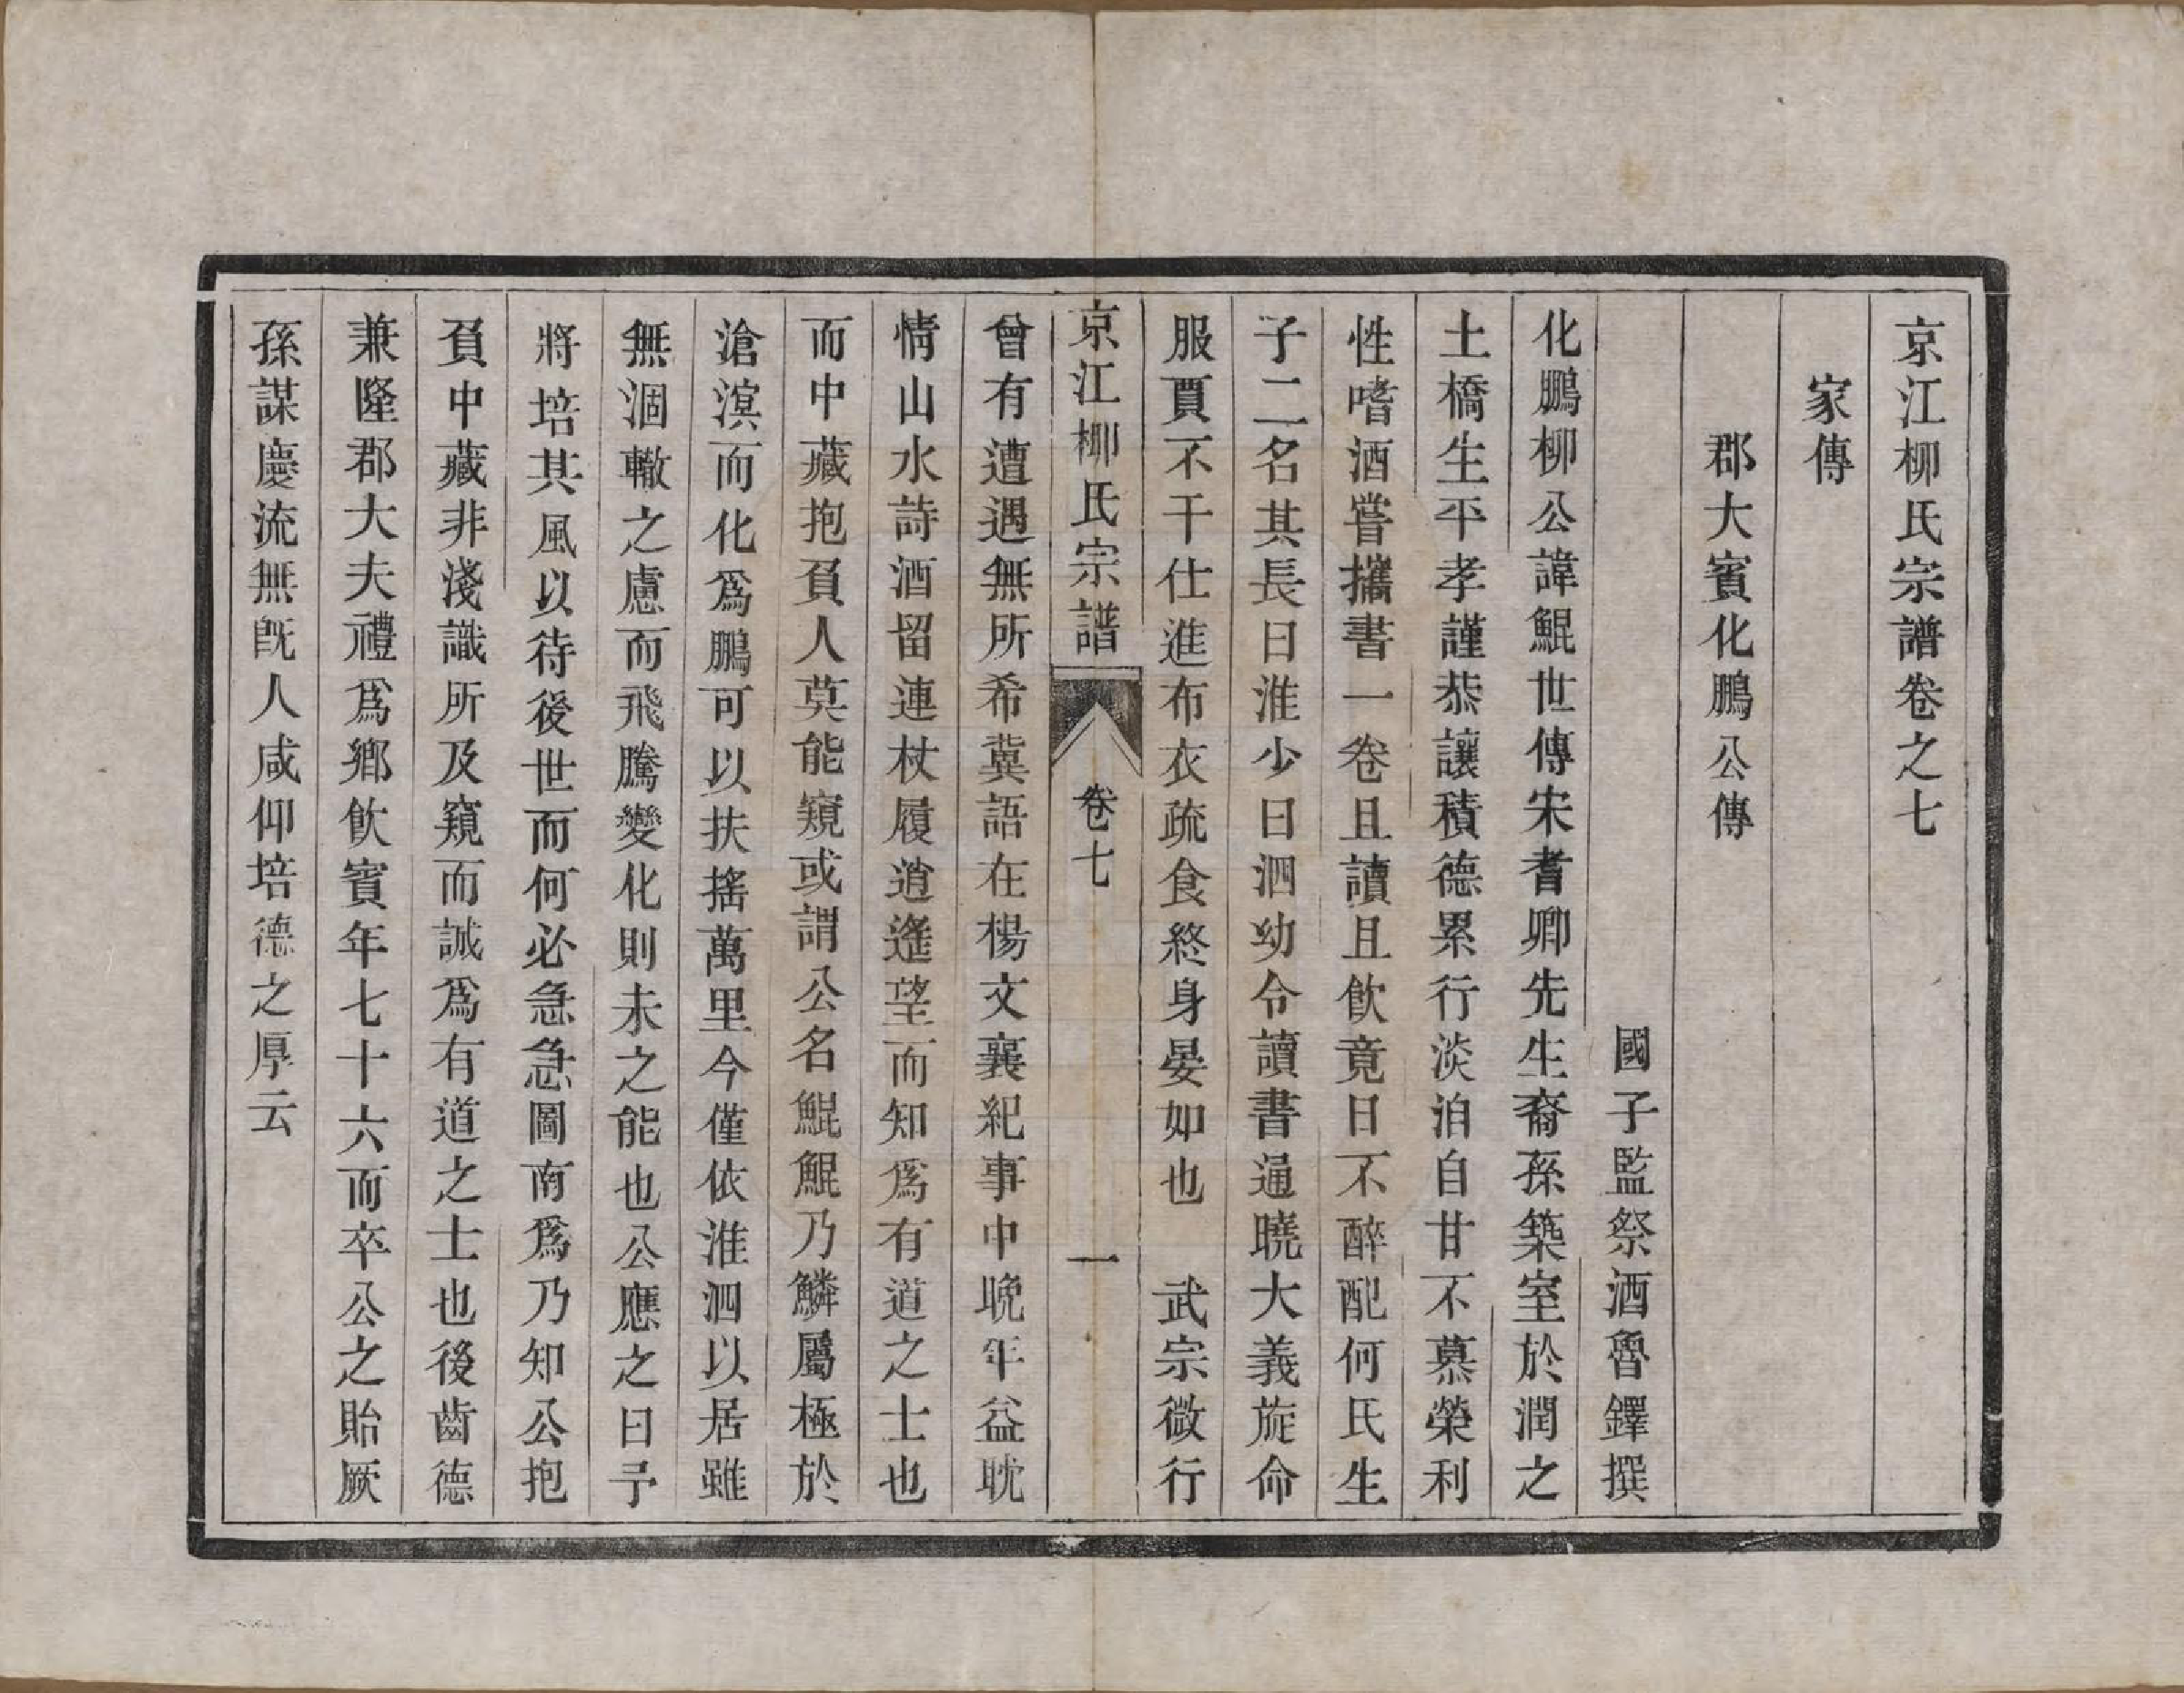 京江柳氏宗譜卷之七
家傳
郡大賓化鵬公傳
國子監祭酒魯鐸撰
化鵬柳公諱鯤世傳宋耆卿先生裔孫築室於潤之
土橋生平孝謹恭讓積德累行淡泊自甘不慕榮利
性嗜酒嘗攜書一卷且讀且飲竟日不醉配何氏生
子二名其長曰淮少曰泗幼令讀書通曉大義旋命
服賈不干仕進布衣疏食終身晏如也　武宗微行
京江柳氏宗譜　卷七　一
曾有遭遇無所希冀語在楊文襄紀事中晚年益耽
情山水詩酒留連杖履逍遙望而知爲有道之士也
而中藏抱負人莫能窺或謂公名鯤鯤乃鱗屬極於
滄溟而化爲鵬可以扶搖萬里今僅依淮泗以居雖
無涸轍之慮而飛騰變化則未之能也公應之曰予
將培其風以待後世而何必急急圖南爲乃知公抱
負中藏非淺識所及窺而誠爲有道之士也後齒德
兼隆郡大夫禮爲鄉飲賓年七十六而卒公之貽厥
孫謀慶流無既人咸仰培德之厚云